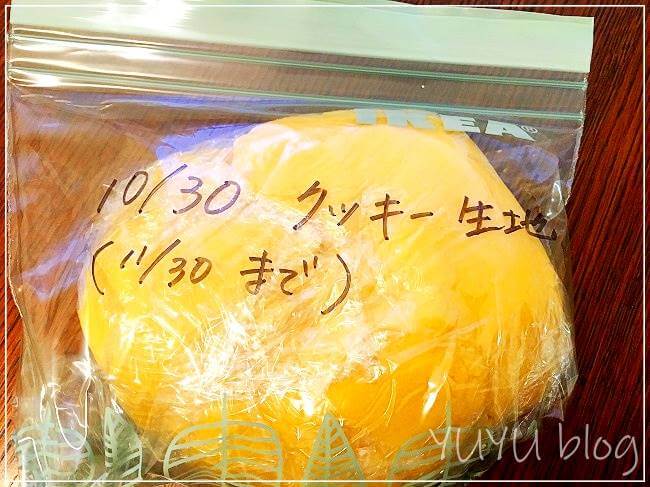 IKEA®
10/30 クッキー生地
(11/30 まで)
YUYU blog